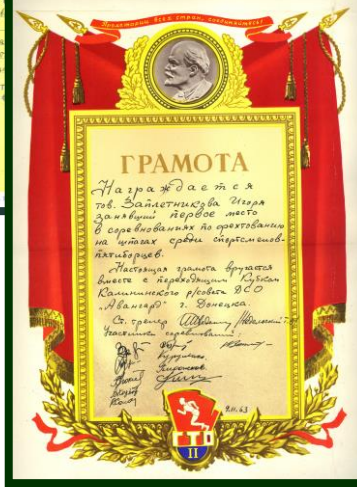 Пролетарии всех стран, соединяйтесь!
ГРАМОТА
Награждается
тов. Заплетникова Игоря
занявший первое место
в соревнованиях по фехтованию
на шпагах среди спортсменов-
пятиборцев.
Настоящая грамота вручается
вместе с переходящим Кубком
Калининского р/совета ДСО
„Авангард" г. Донецка.
Ст. тренер
Участники соревнований:
9.II.63
ГТО
II